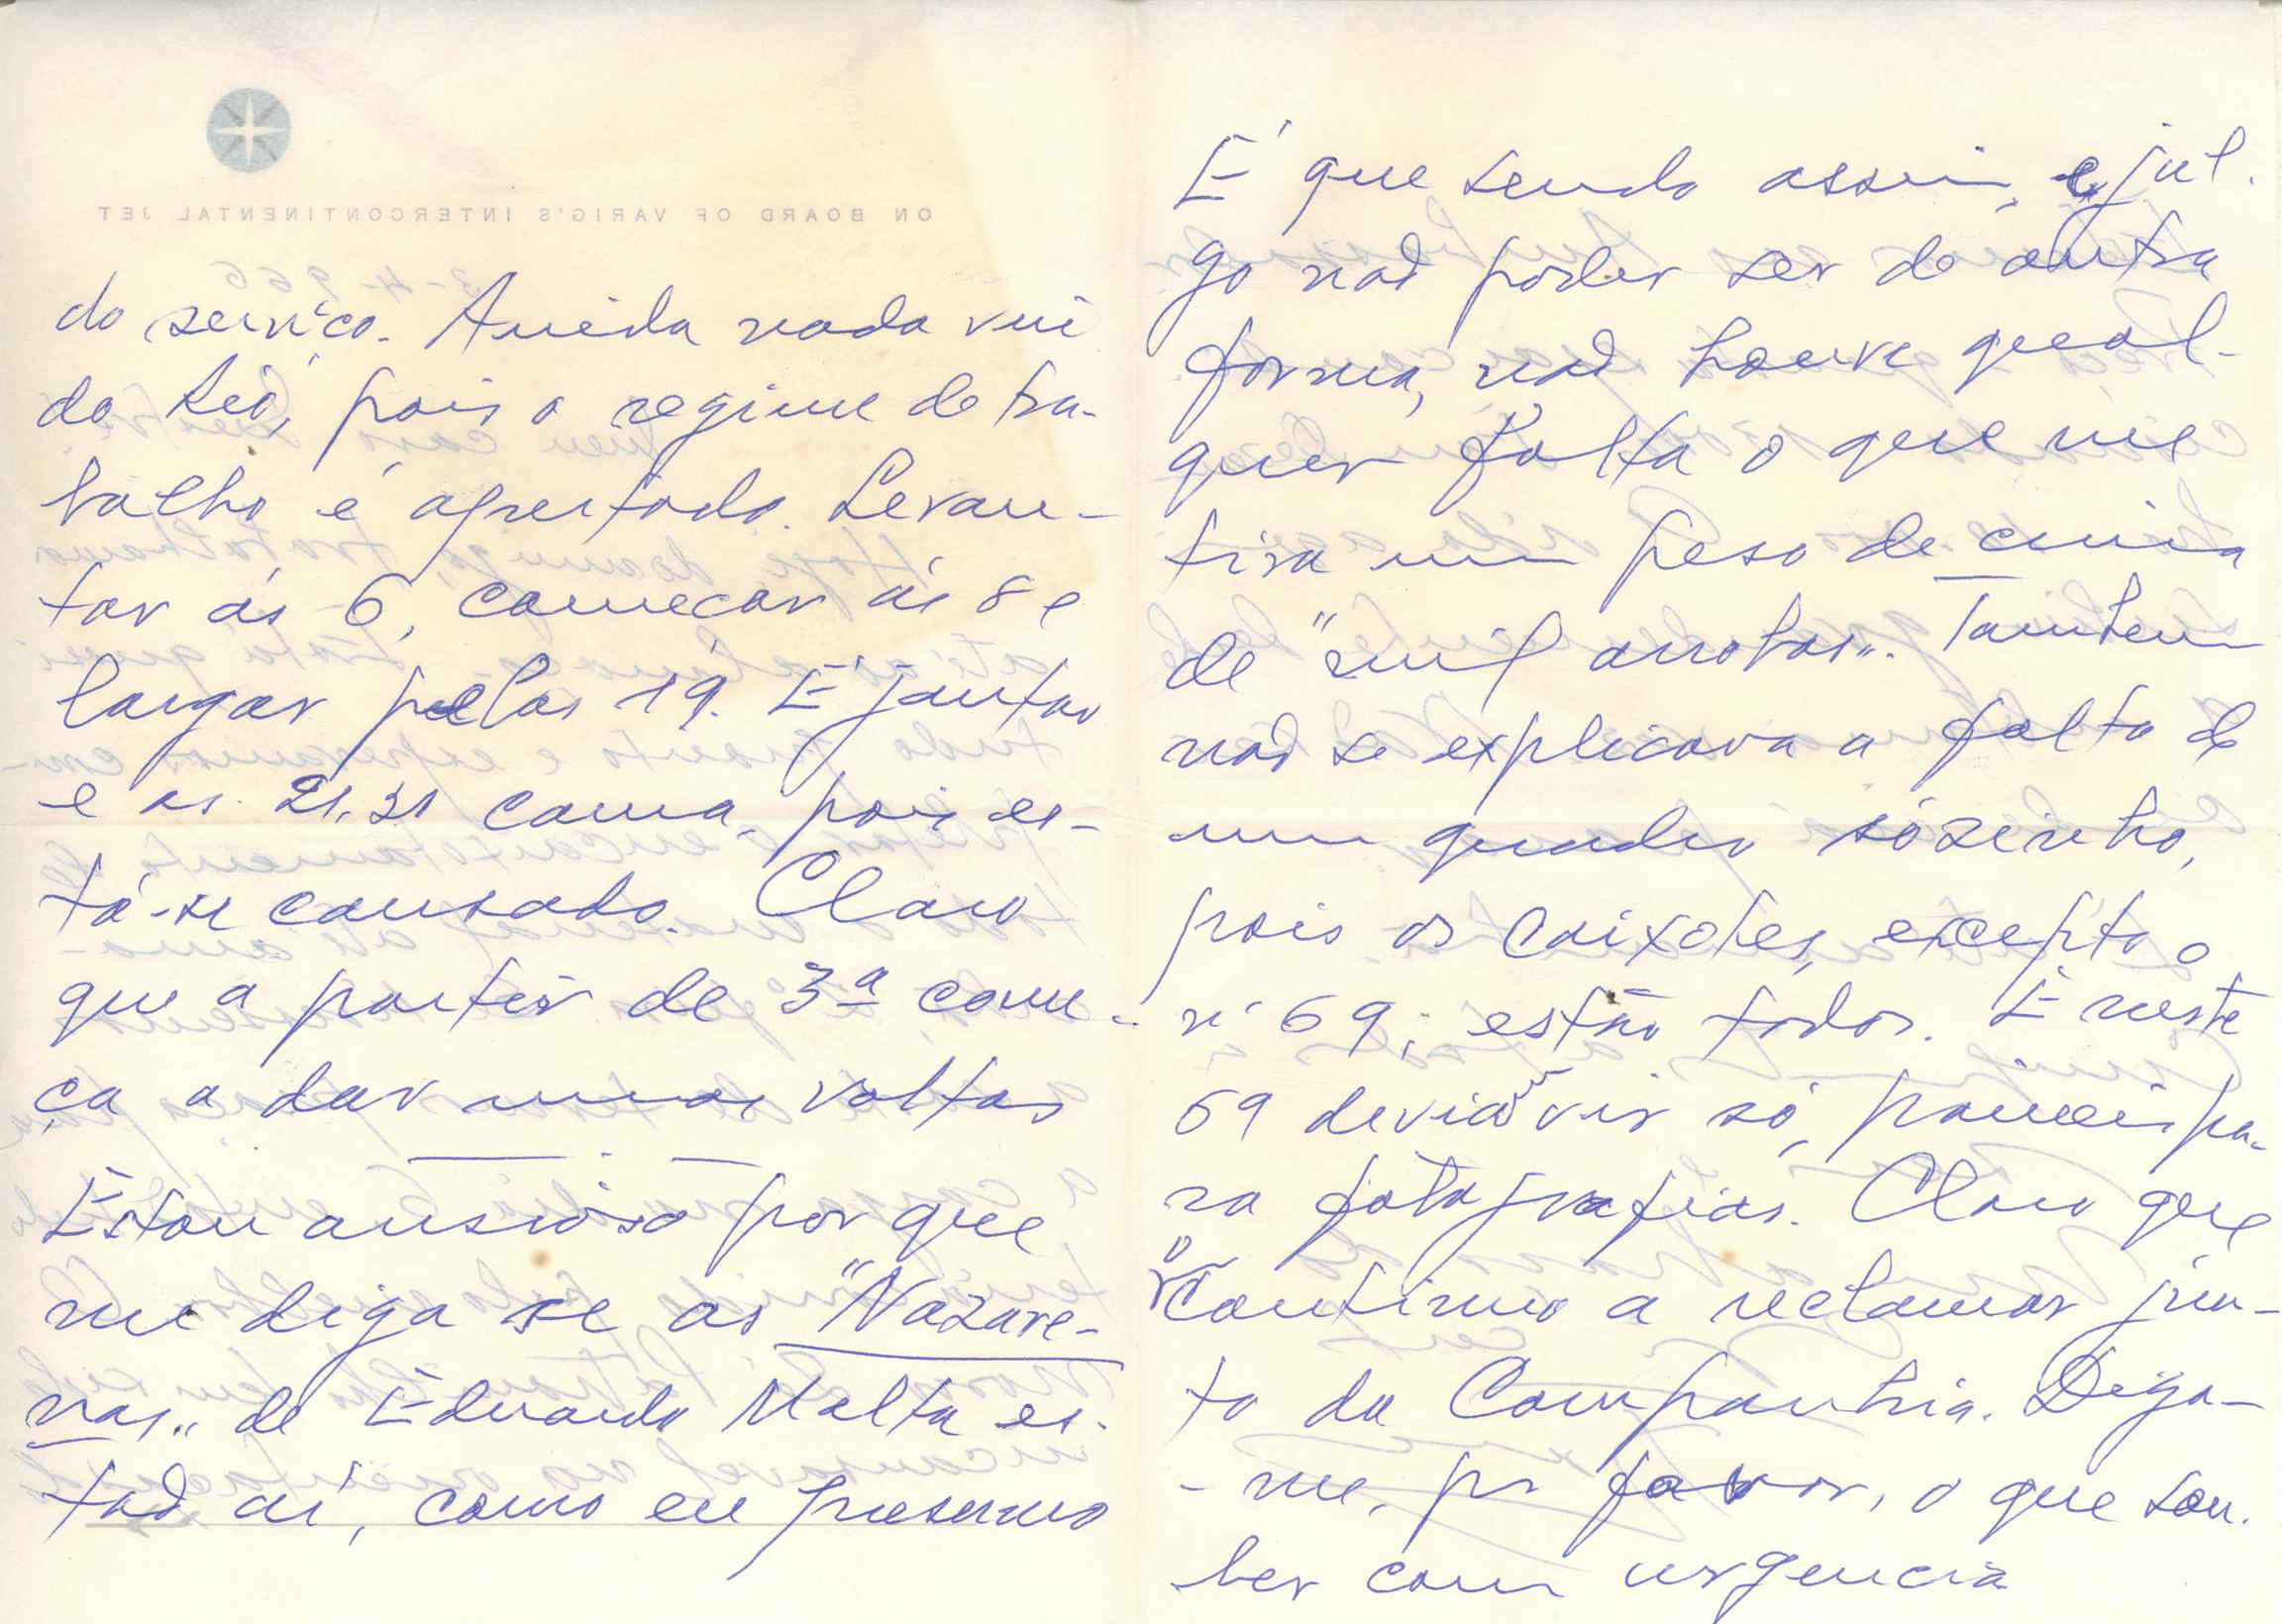 ON BOARD OF VARIG'S INTERCONTINENTAL JET
3-4-966
do serviço. Ainda nada vi
do Rio, pois o regime de tra-
balho é apertado. Levan-
tar ás 6, começar ás 8 e
largar pelas 19. E jantar
e as 21.31 cama, pois es-
tá-se cansado. Claro
que a partir de 3ª come-
ça a dar umas voltas
Estou ansioso por que
me diga se as "Nazare-
nas" de Eduardo Malta es-
tad aí, como eu presumo
É que sendo assim, e jul-
go nad poder ser de outra
forma, nad houve qual-
quer falta o que me
tira um peso de cima
de "mil arrobas". Tambem
nad se explicava a falta de
um quadro sózinho,
pois os caixotes, excepto o
nº 69, estão todos. E neste
69 devia vir só paineis pa-
ra fotografias. Claro que
continuo a reclamar jun-
to da Companhia. Diga-
-me, por favor, o que sou-
ber com urgencia